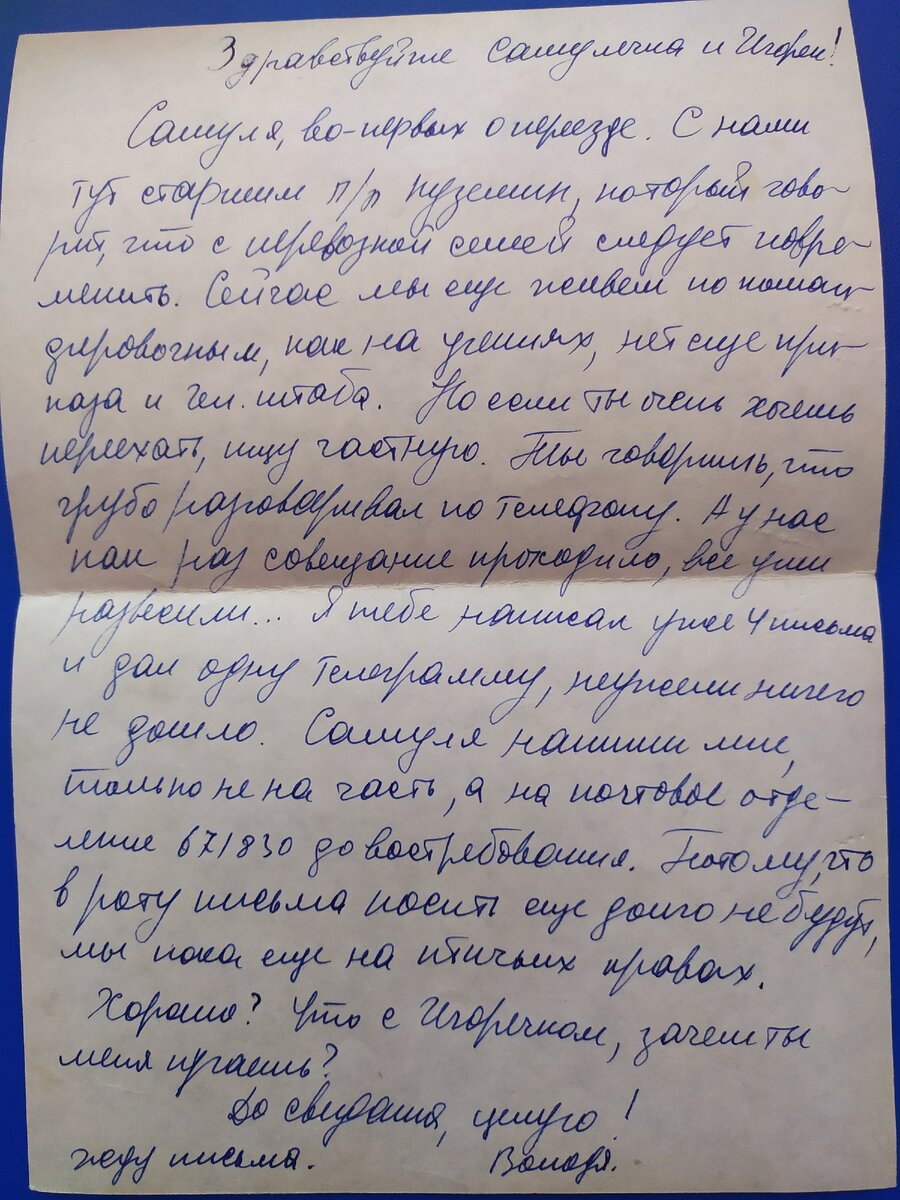 Здравствуйте Сашулечка и Игорек!
Сашуля, во-первых о переезде. С нами
тут старшим п/п Кузёмин, который гово-
рит, что с перевозкой семей следует повре-
менить. Сейчас мы еще живем по коман-
дировочным, как на учениях, нет еще при-
каза и Ген. штаба. Но если ты очень хочешь
переехать, ищу частную. Ты говоришь, что
грубо разговаривал по телефону. А у нас
как раз совещание проходило, все уши
развесили... Я тебе написал уже 4 письма
и дал одну телеграмму, неужели ничего
не дошло. Сашуля напиши мне,
только не на часть, а на почтовое отде-
ление 671830 до востребования. Потому, что
в роту письма носить еще долго не будут,
мы пока еще на птичьих правах.
Хорошо? Что с Игоречком, зачем ты
меня пугаешь?
До свидания, целую!
жду письма. Володя.